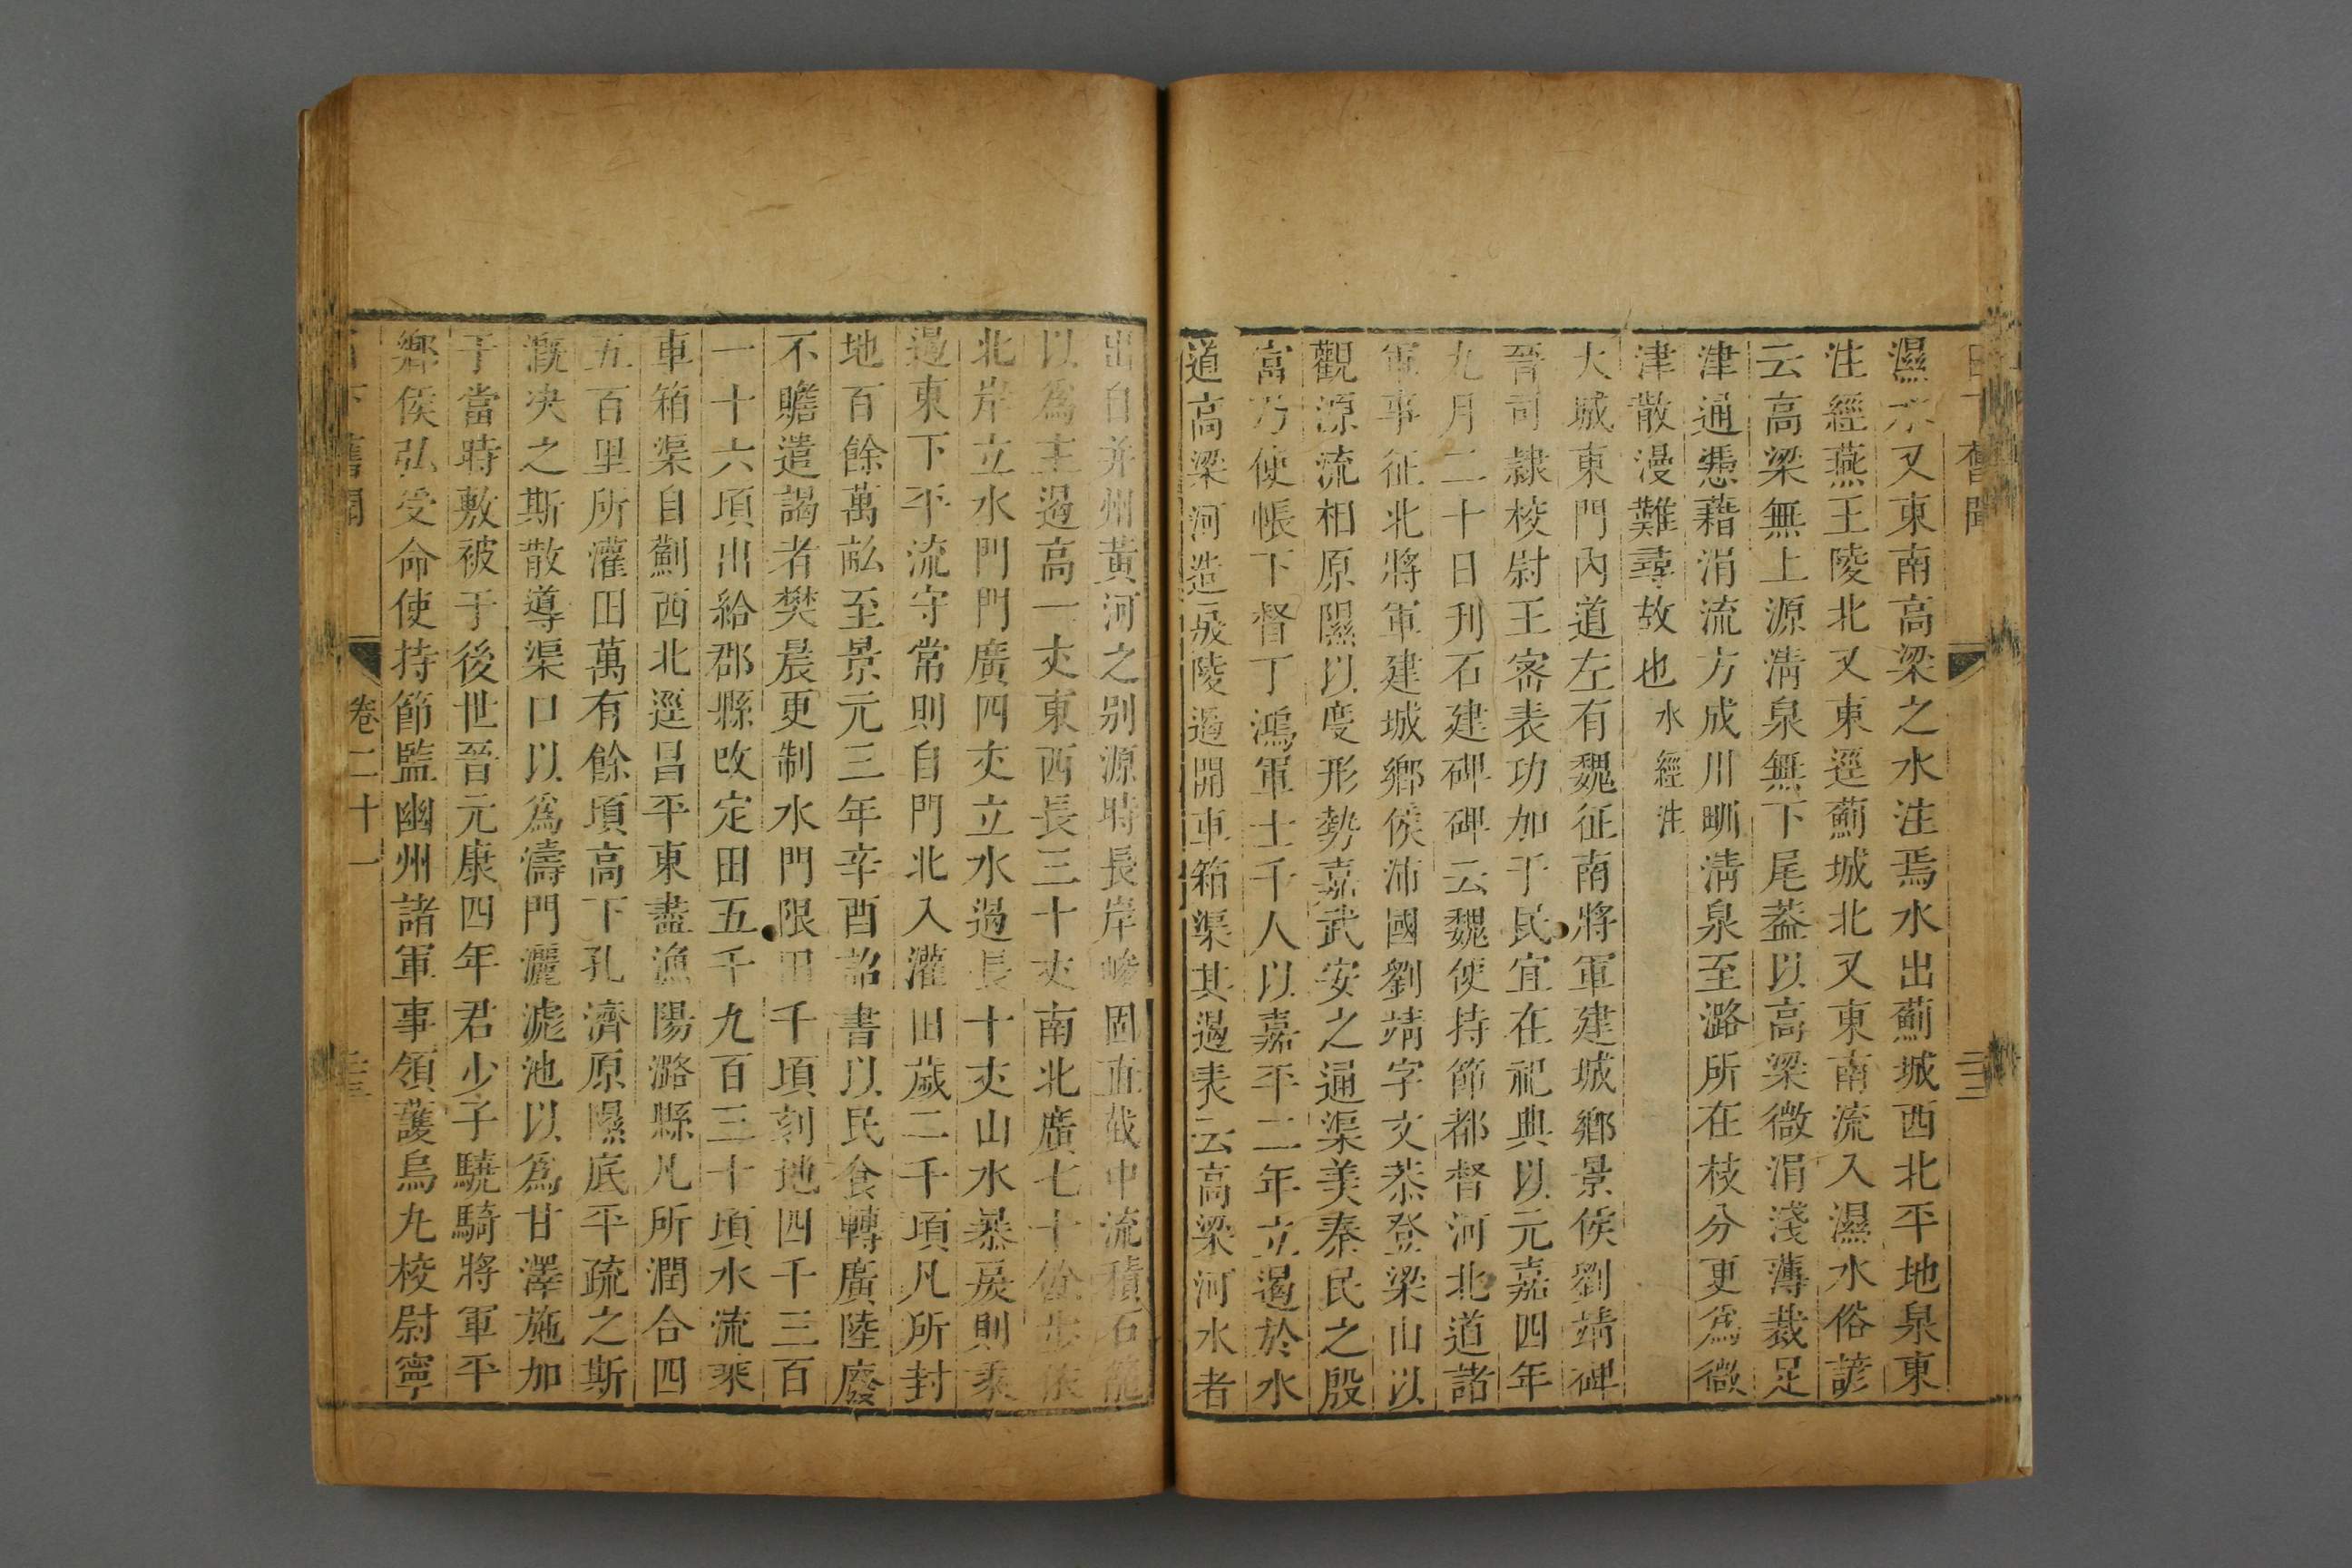 舊聞
濕水又東南高梁之水注焉水出薊城西北平地泉東
注經燕王陵北又東逕薊城北又東南流入濕水俗諺
云高梁無上源淸泉無下尾蓋以高梁微涓淺薄裁足
津通憑藉涓流方成川甽淸泉至潞所在枝分更爲微
津散漫難尋故也水經注
大城東門內道左有魏征南將軍建城鄉景侯劉靖碑
晉司隸校尉王密表功加于民宜在祀典以元嘉四年
九月二十日刋石建碑碑云魏使持節都督河北道諸
軍事征北將軍建城鄉侯沛國劉靖字文恭登梁山以
觀源流相原隰以度形勢嘉武安之通渠羙秦民之殷
富乃使帳下督丁鴻軍士千人以嘉平二年立遏於水
道高梁河造戾陵遏開車箱渠其遏表云高梁河水者
出自并州黃河之别源時長岸峻固直截中流積石籠
以爲主遏高一丈東西長三十丈南北廣七十餘步依
北岸立水門門廣四丈立水遏長十丈山水暴戾則乘
遏東下平流守常則自門北入灌田歲二千頃凡所封
地百餘萬畝至景元三年辛酉詔書以民食轉廣陸廢
不贍遣謁者樊晨更制水門限田千頃刻地四千三百
一十六頃出給郡縣改定田五千九百三十頃水流乘
車箱渠自薊西北逕昌平東盡漁陽潞縣凡所潤合四
五百里所灌田萬有餘頃高下孔濟原隰底平疏之斯
漑决之斯散導渠口以爲濤門灑滮池以爲甘澤施加
于當時敷被于後世晉元康四年君少子驍騎將軍平
鄉侯弘受命使持節監幽州諸軍事領護烏丸校尉寧
下舊聞 卷二十一